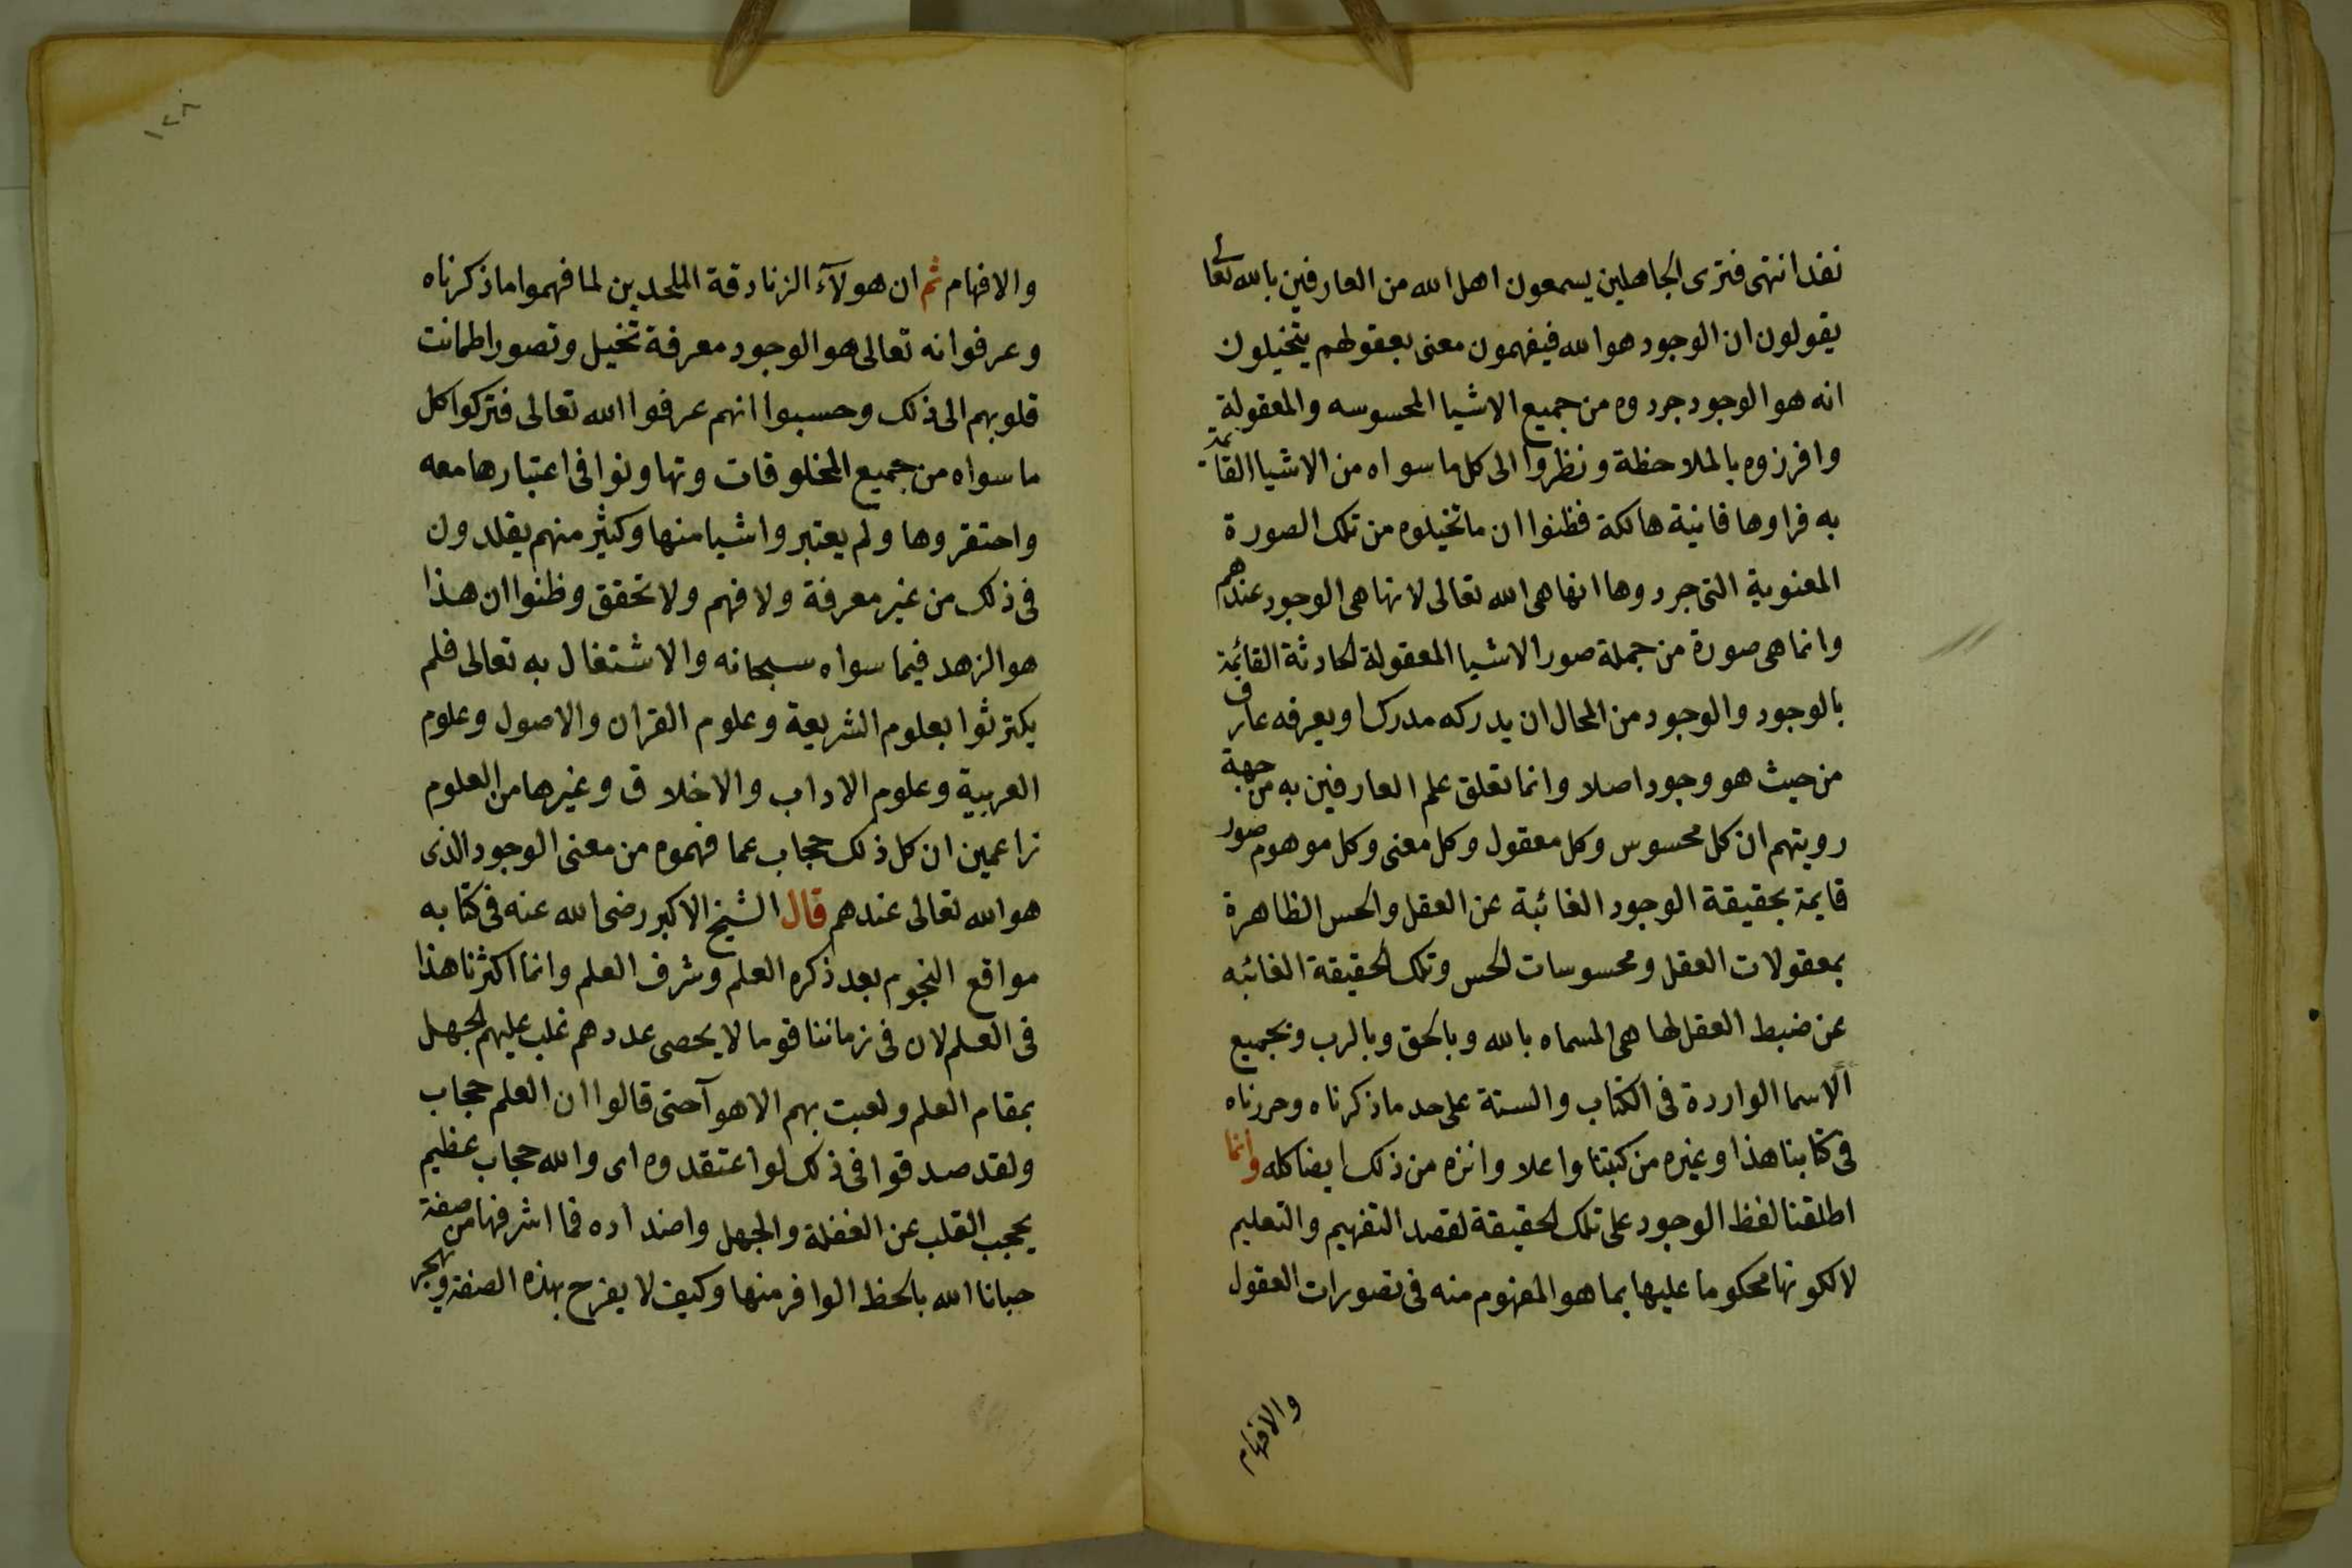 نفذ انتهى فترى الجاهلين يسمعون اهل الله من العارفين بالله تعالى
يقولون ان الوجود هو الله فيفهمون معنى بعقولهم يتخيلون
انه هو الوجود جردوه من جميع الاشيا المحسوسه والمعقولة
وافرزوه بالملاحظة ونظروا الى كل ما سواه من الاشيا القائمة
به فراوها فانية هالكة فظنوا ان ما تخيلوه من تلك الصورة
المعنوية التى جردوها انها هى الله تعالى لانها هى الوجود عندهم
وانما هى صورة من جملة صور الاشيا المعقولة الحادثة القائمة
بالوجود والوجود من المحال ان يدركه مدرك او يعرفه عارف
من حيث هو وجود اصلا وانما تعلق علم العارفين به من جهة
رويتهم ان كل محسوس وكل معقول وكل معنى وكل موهوم صور
قايمة بحقيقة الوجود الغائبة عن العقل والحس الظاهرة
بمعقولات العقل ومحسوسات الحس وتلك الحقيقة الغائبه
عن ضبط العقل لها هى المسماه بالله وبالحق وبالرب وبجميع
الاسما الواردة فى الكتاب والسنة على حد ما ذكرناه وحررناه
فى كتابنا هذا وغيره من كتبنا واعلا وانزه من ذلك ايضا كله وانما
اطلقنا لفظ الوجود على تلك الحقيقة لقصد التفهيم والتعليم
لا لكونها محكوما عليها بما هو المفهوم منه فى تصورات العقول
والافهام
١٢٨
والافهام ثم ان هولآء الزنادقة الملحدين لما فهموا ما ذكرناه
وعرفوا انه تعالى هو الوجود معرفة تخيل وتصور اطمانت
قلوبهم الى ذلك وحسبوا انهم عرفوا الله تعالى فتركوا كل
ما سواه من جميع المخلوقات وتهاونوا فى اعتبارها معه
واحتقروها ولم يعتبروا شيا منها وكثير منهم يقلدون
فى ذلك من غير معرفة ولا فهم ولا تحقق وظنوا ان هذا
هو الزهد فيما سواه سبحانه والاشتغال به تعالى فلم
يكترثوا بعلوم الشريعة وعلوم القران والاصول وعلوم
العربية وعلوم الاداب والاخلاق وغيرها من العلوم
زاعمين ان كل ذلك حجاب عما فهموه من معنى الوجود الذى
هو الله تعالى عندهم قال الشيخ الاكبر رضى الله عنه فى كتابه
مواقع النجوم بعد ذكره العلم وشرف العلم وانما اكثرنا هذا
فى العلم لان فى زماننا قوما لا يحصى عددهم غلب عليهم الجهل
بمقام العلم ولعبت بهم الاهوآ حتى قالوا ان العلم حجاب
ولقد صدقوا فى ذلك لو اعتقدوه اى والله حجاب عظيم
يحجب القلب عن الغفلة والجهل واضداده فما اشرفها من صفة
حبانا الله بالحظ الوافر منها وكيف لا يفرح بهذه الصفة ويهجر